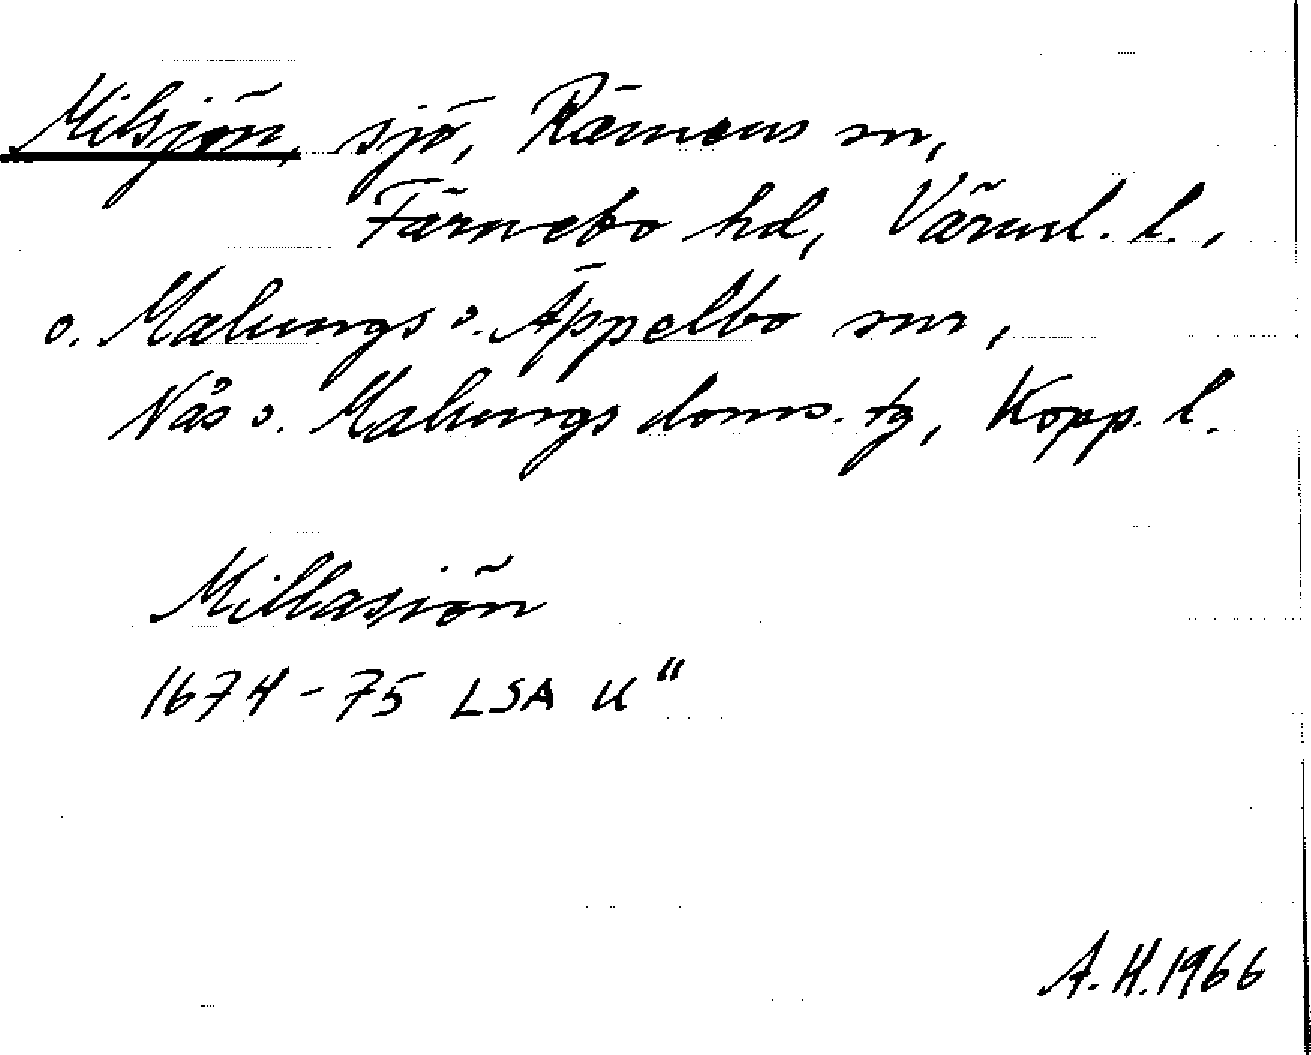 Milsjön, sjö, Rämens sn,
Färnebo hd, Värml. l.,
o. Malungs o. Äppelbo snr,
Nås o. Malungs doms. tg, Kopp. l.
Millasiön
1674-75 LSA U"
A. H. 1966